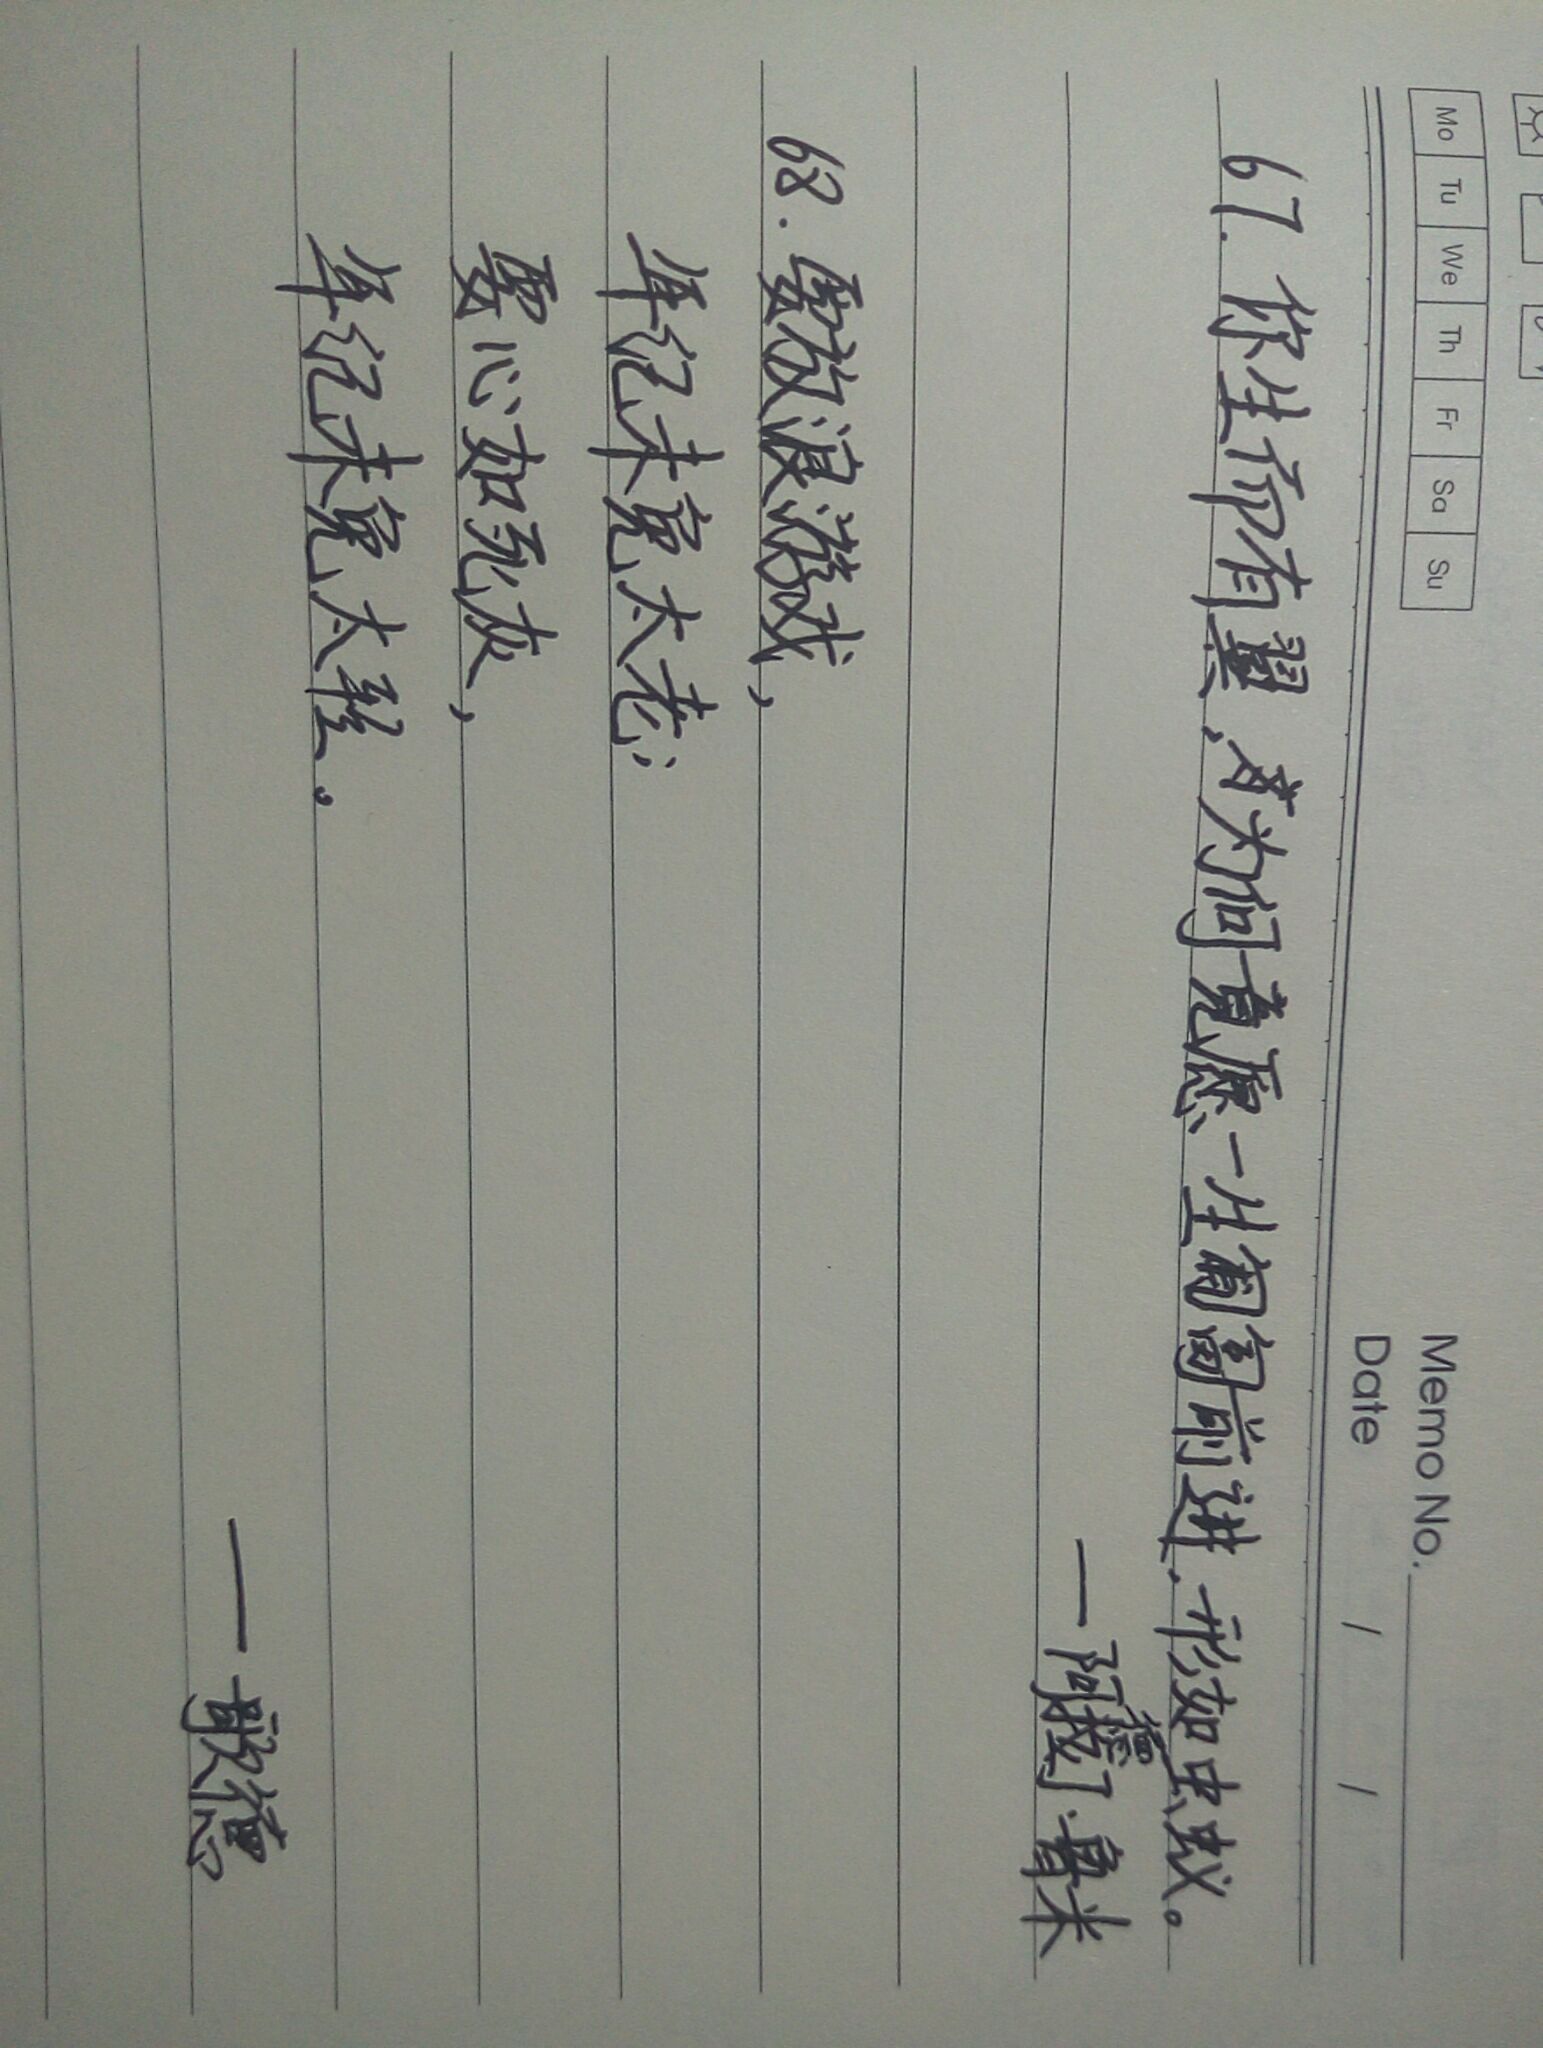 Mo Tu We Th Fr Sa Su
Memo No.
Date / /
67. 你生而有翼，为何竟愿一生匍匐前进，形如虫蚁。
— 阿拉德丁·鲁米
68. 要放浪游戏，
年纪未免太老；
要心如死灰，
年纪未免太轻。
—— 歌德